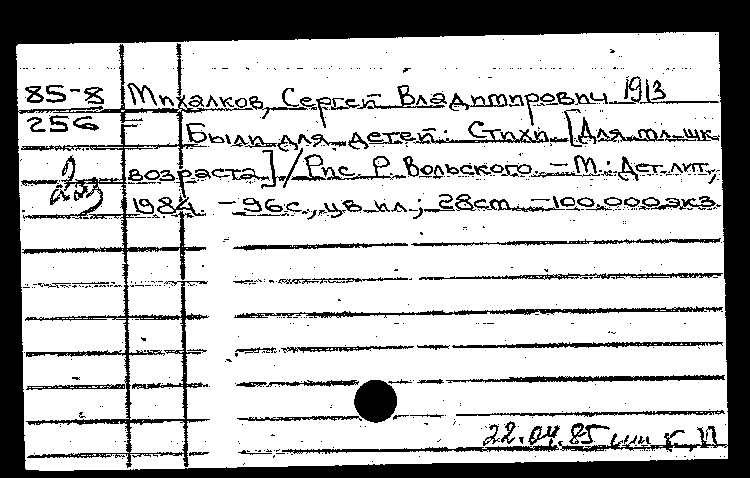 85-8 Михалков, Сергей Владимирович 1913
256 = Были для детей: Стихи [Для мл. шк.
возраста] / Рис. Р. Вольского. – М.: Дет. лит.,
2 экз 1984. – 96с., цв. ил.; 28см. – 100.000 экз.
22.04.85